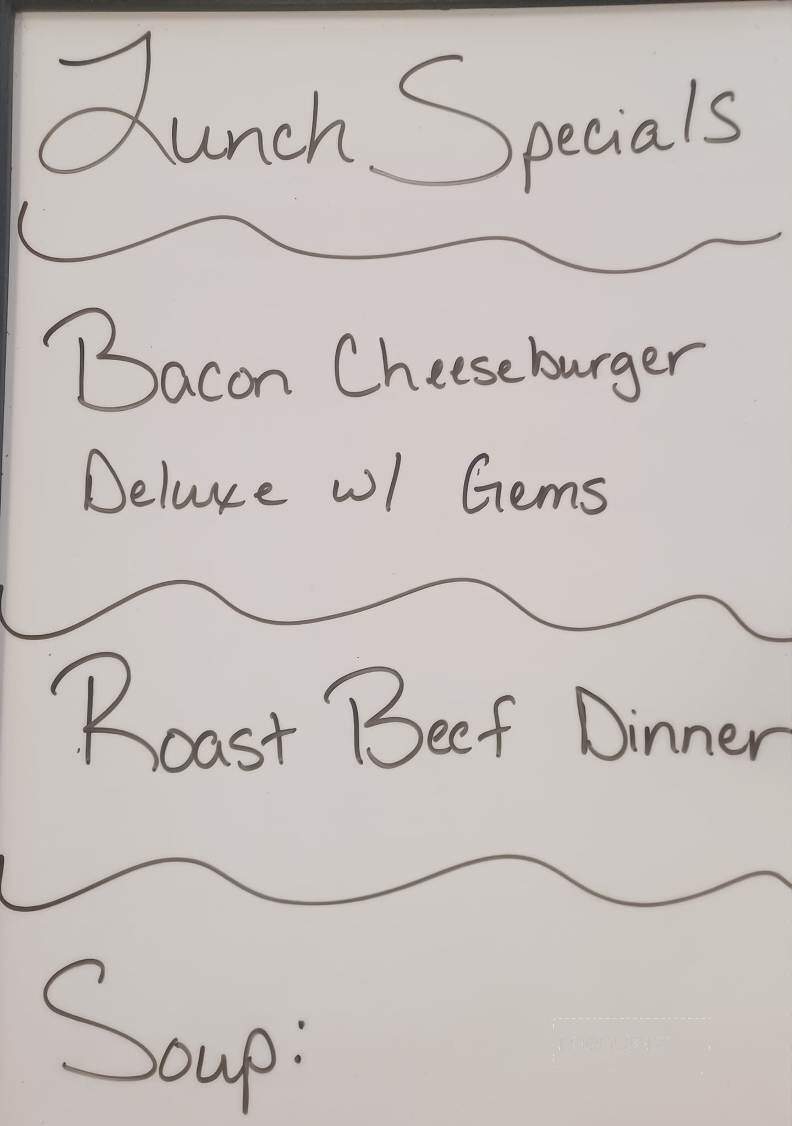 Lunch Specials
Bacon Cheeseburger
Deluxe w/ Gems
Roast Beef Dinner
Soup: